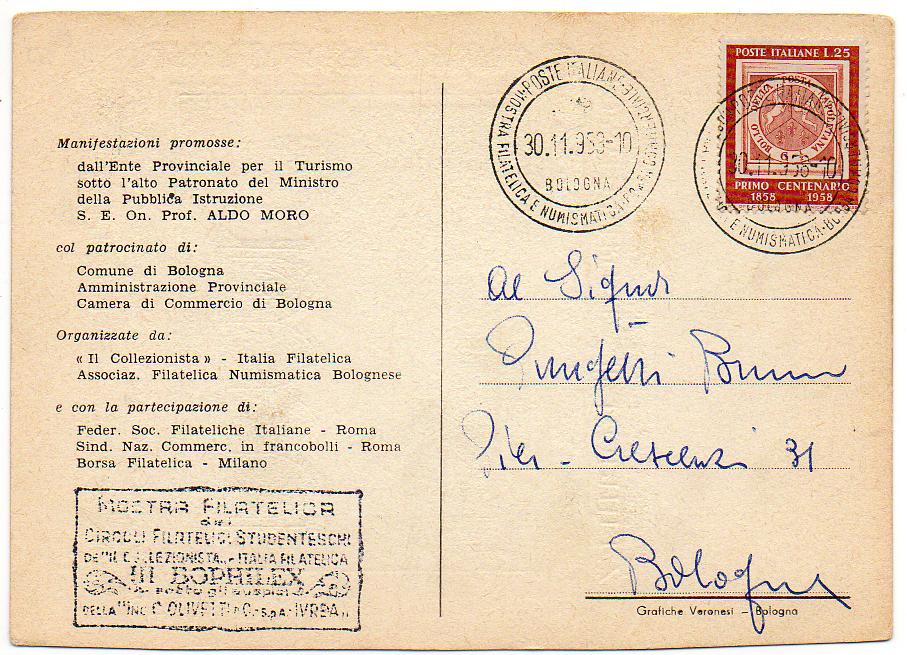 Manifestazioni promosse:
dall'Ente Provinciale per il Turismo
sotto l'alto Patronato del Ministro
della Pubblica Istruzione
S. E. On. Prof. ALDO MORO
col patrocinato di:
Comune di Bologna
Amministrazione Provinciale
Camera di Commercio di Bologna
Organizzate da:
« Il Collezionista » - Italia Filatelica
Associaz. Filatelica Numismatica Bolognese
e con la partecipazione di:
Feder. Soc. Filateliche Italiane - Roma
Sind. Naz. Commerc. in francobolli - Roma
Borsa Filatelica - Milano
MOSTRA FILATELICA
dei
CIRCOLI FILATELICI STUDENTESCHI
DE "IL COLLEZIONISTA - ITALIA FILATELICA
III BOPHILEX
sotto gli auspici
DELLA "ING. C. OLIVETTI & C. - S.p.A. - IVREA"
POSTE ITALIANE
MOSTRA FILATELICA E NUMISMATICA
30.11.958-10
BOLOGNA
POSTE ITALIANE L.25
BOLLO DELLA POSTA NAPOLETANA
PRIMO CENTENARIO
1858 1958
30.11.958-10
BOLOGNA
E NUMISMATICA - BORSA
Al Signor
Bruno
Crescenzi 31
Bologna
Grafiche Veronesi - Bologna